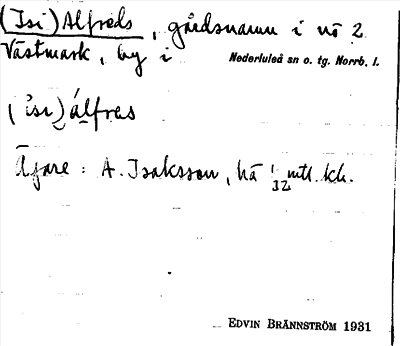 (Isi)Alfreds, gårdsnamn i nö 2
Västmark, by i Nederluleå sn o. tg. Norrb. l.
(isi)álfres
Ägare: A. Isaksson, hä 1/32 mtl. kh.
EDVIN BRÄNNSTRÖM 1931